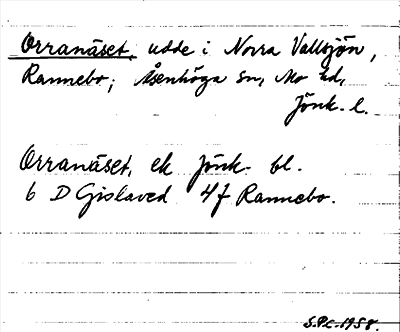 Orranäset, udde i Norra Vallsjön,
Rannebo; Åsenhöga sn, Mo hd,
Jönk. l.
Orranäset, ek Jönk. bl.
6 D Gislaved 4f Rannebo.
S.P.C. 1958.